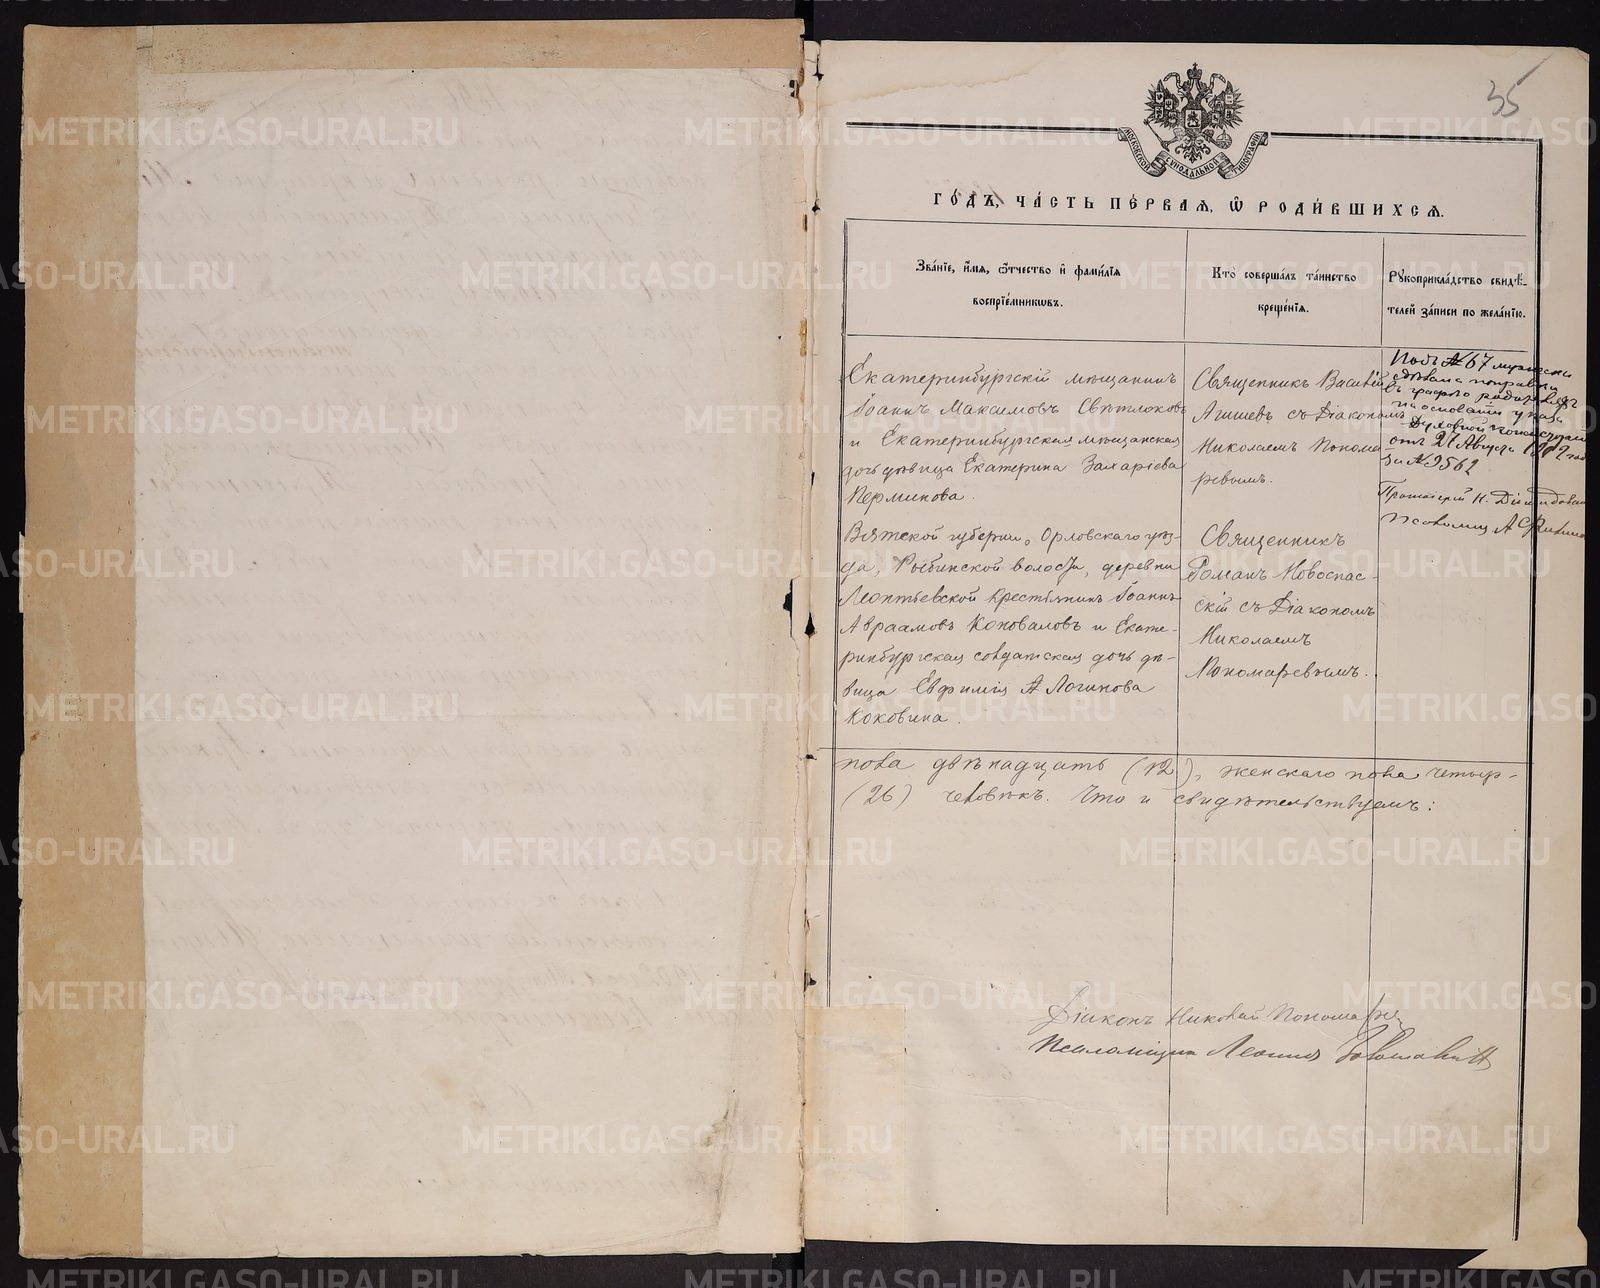 35
МОСКОВСКОЙ СѴНОДАЛЬНОЙ ТИПОГРАФІИ
ГОДЪ, ЧАСТЬ ПЕРВАЯ, Ѽ РОДИВШИХСЯ.
Званіе, имя, ѿчество и фамилія
воспріемниковъ.
Кто совершалъ таинство
крещенія.
Рукоприкладство свидѣ-
телей записи по желанію.
Екатеринбургскій мѣщанинъ
Іоаннъ Максимовъ Свѣтлоковъ
и Екатеринбургская мѣщанская
дочь дѣвица Екатерина Захаріева
Пермикова.
Священникъ Василій
Агишевъ съ Діакономъ
Николаемъ Понома-
ревымъ.
Подъ №67 мужеска
сдѣлана поправка
въ графѣ родителей
на основаніи указа
Духовной Консисторіи
отъ 27 Августа 1902 года
за №9562
Протоіерей Н.
Псаломщ. А.
Вятской губерніи, Орловскаго уѣз-
да, Рыбинской волости, деревни
Леонтьевской крестьянинъ Іоаннъ
Авраамовъ Коноваловъ и Екате-
ринбургская солдатская дочь дѣ-
вица Евфимія А Логинова
Коковина.
Священникъ
Романъ Новоспас-
скій съ Діакономъ
Николаемъ
Пономаревымъ.
пола двѣнадцать (12), женскаго пола четыр-
(26) человѣкъ. Что и свидѣтельствуемъ:
Діаконъ Николай Пономарев
Псаломщик Леонид
METRIKI.GASO-URAL.RU